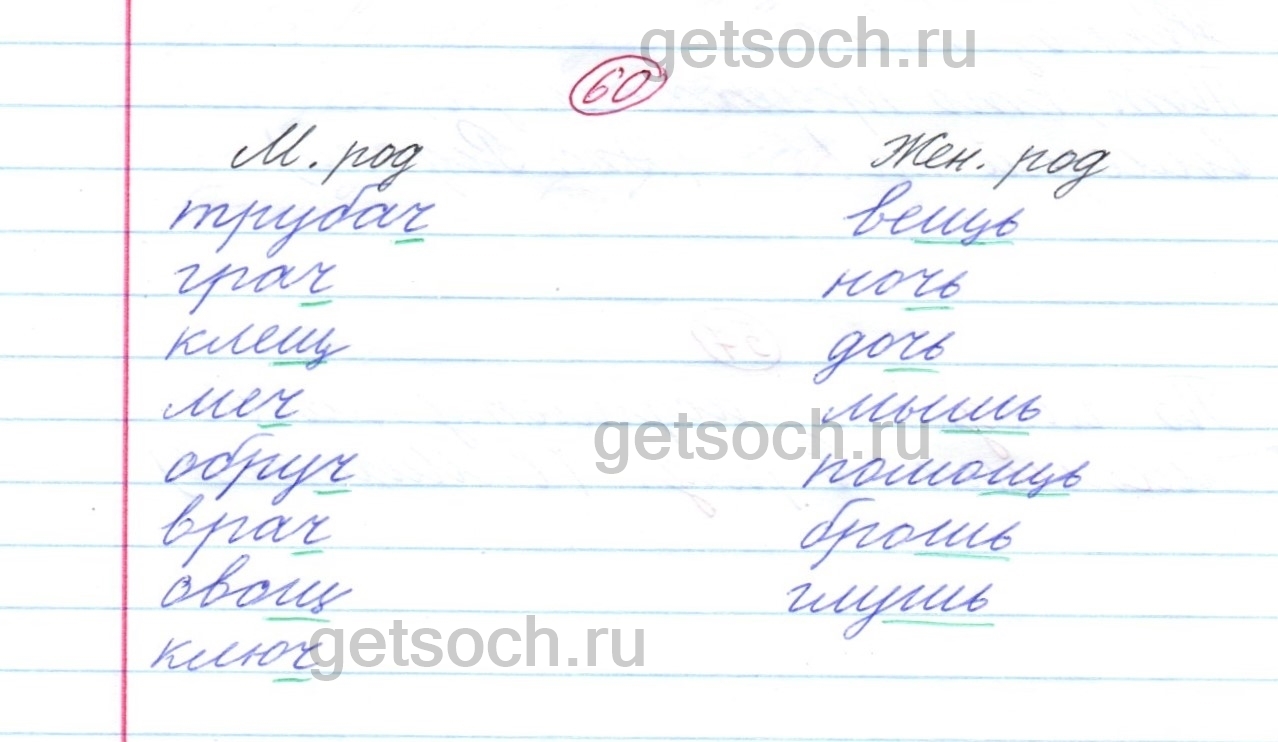 getsoch.ru
60
М. род Жен. род
трубач вещь
грач ночь
клещ дочь
меч мышь
getsoch.ru
обруч помощь
врач брошь
овощ глушь
getsoch.ru
ключ